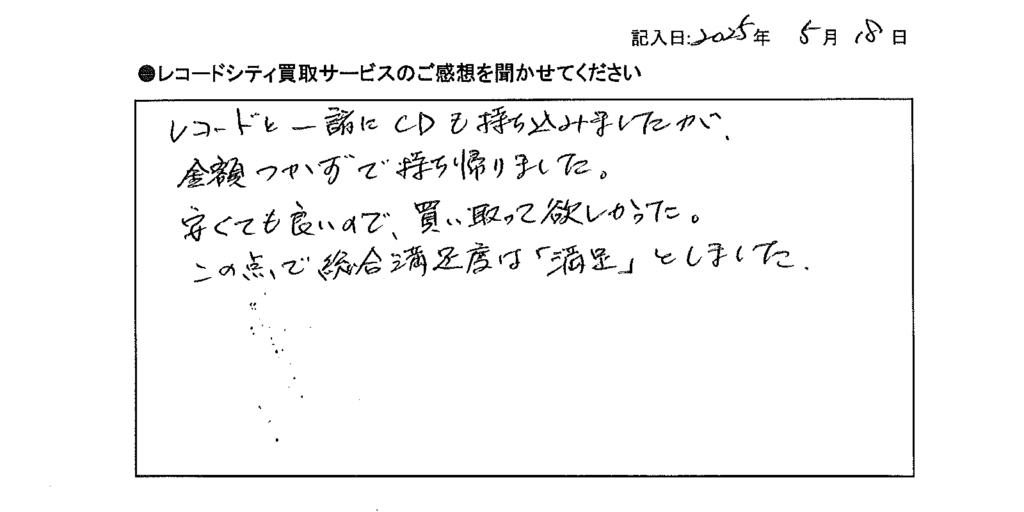 記入日:2025年 5月 18日
●レコードシティ買取サービスのご感想を聞かせてください
レコードと一諸にCDも持ち込みましたが、
金額つかずで持ち帰りました。
安くても良いので、買い取って欲しかった。
この点で総合満足度は「満足」としました.